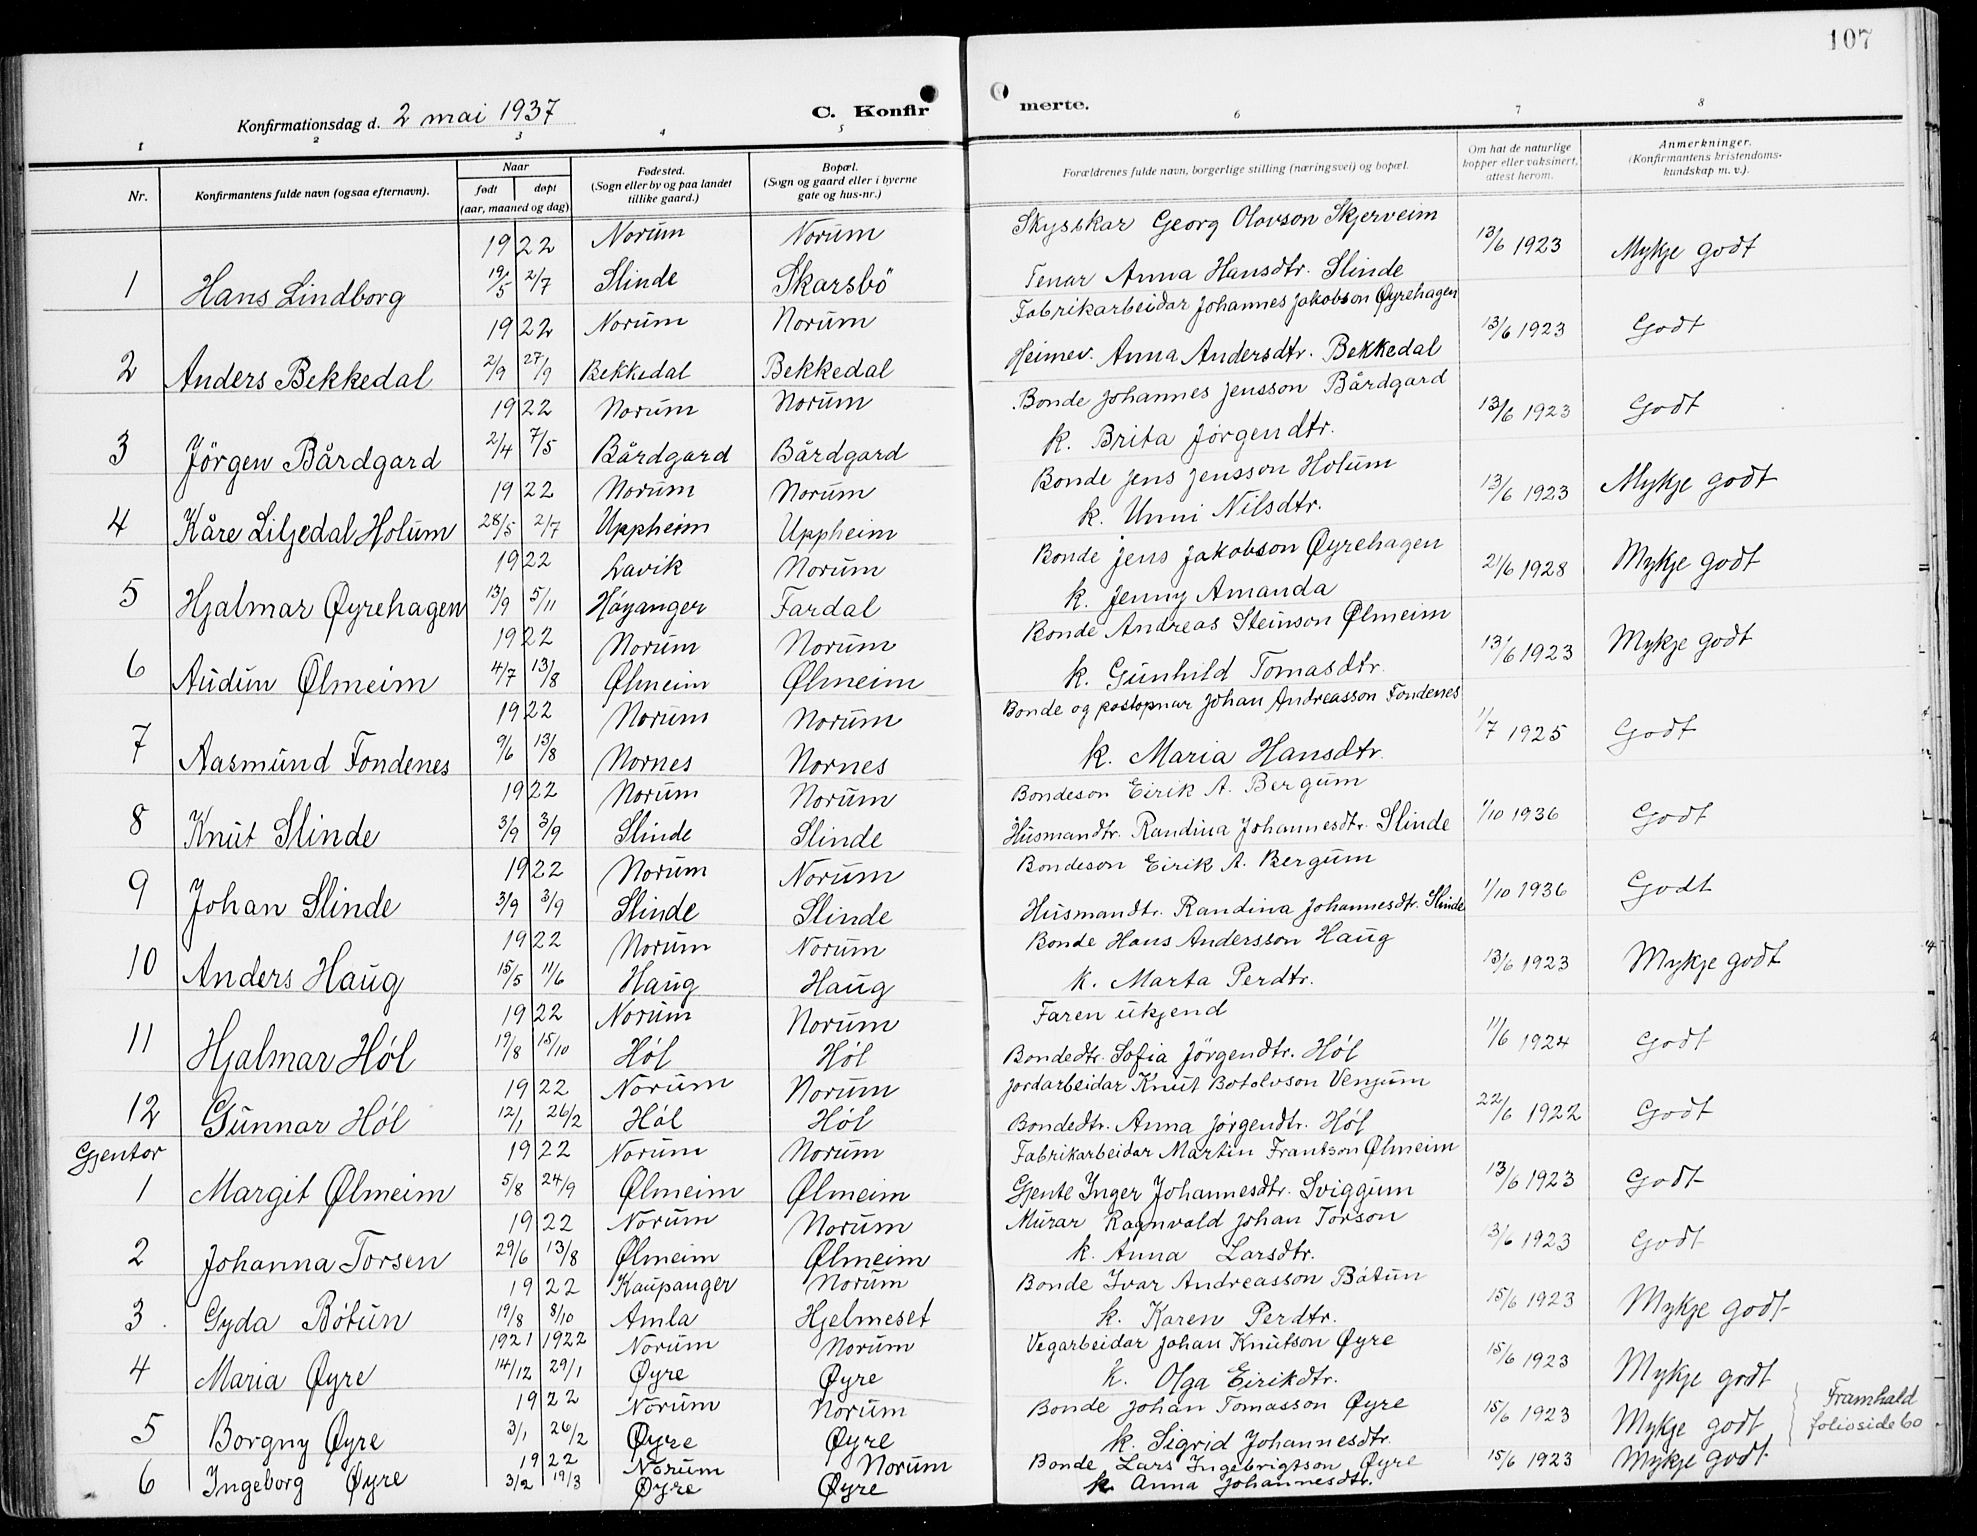 107
Konfirmationsdag d. 2 mai 1937
C. Konfir merte.
1 2 3 4 5 6 7 8
Nr. Konfirmantens fulde navn (ogsaa efternavn). Naar født døpt (aar, maaned og dag) Fødested. (Sogn eller by og paa landet tillike gaard.) Bopæl. (Sogn og gaard eller i byerne gate og hus-nr.) Forældrenes fulde navn, borgerlige stilling (næringsvei) og bopæl. Om hat de naturlige kopper eller vaksinert, attest herom. Anmerkninger. (Konfirmantens kristendoms-kundskap m. v.).
1922 Norum Norum Skysskar Georg Olavson Skjerveim 13/6 1923 Mykje godt
1 Hans Lindborg 19/5 2/7 Slinde Skarsbö Tenar Anna Hansdtr. Slinde
1922 Norum Norum Fabrikarbeidar Johannes Jakobson Øyrehagen 13/6 1923 Godt
2 Anders Bekkedal 2/9 27/9 Bekkedal Bekkedal Heimev. Anna Andersdtr. Bekkedal
1922 Norum Norum Bonde Johannes Jensson Bårdgard 13/6 1923 Godt
3 Jörgen Bårdgard 2/4 7/5 Bårdgard Bårdgard k. Brita Jørgendtr.
1922 Norum Norum Bonde Jens Jensson Holum 13/6 1923 Mykje godt
4 Kåre Liljedal Holum 28/5 2/7 Uppheim Uppheim k. Unni Nilsdtr.
1922 Lavik Norum Bonde Jens Jakobson Øyrehagen 21/6 1928 Mykje godt
5 Hjalmar Øyrehagen 13/9 5/11 Høyanger Fardal k. Jenny Amanda
1922 Norum Norum Bonde Andreas Steinson Ølmeim 13/6 1923 Mykje godt
6 Audun Ølmeim 4/7 13/8 Ølmeim Ølmeim k. Gunhild Tomasdtr.
1922 Norum Norum Bonde og postopnar Johan Andreasson Fondenes 1/7 1925 Godt
7 Aasmund Fondenes 9/6 13/8 Nornes Nornes k. Maria Hansdtr.
1922 Norum Norum Bondeson Eirik A. Bergum 1/10 1936 Godt
8 Knut Slinde 3/9 3/9 Slinde Slinde Husmandtr. Randina Johannesdtr. Slinde
1922 Norum Norum Bondeson Eirik A. Bergum 1/10 1936 Godt
9 Johan Slinde 3/9 3/9 Slinde Slinde Husmandtr. Randina Johannesdtr. Slinde
1922 Norum Norum Bonde Hans Andersson Haug 13/6 1923 Mykje godt
10 Anders Haug 15/5 11/6 Haug Haug k. Marta Perdtr.
1922 Norum Norum Faren ukjend 11/6 1924 Godt
11 Hjalmar Høl 19/8 15/10 Høl Høl Bondedtr. Sofia Jörgendtr. Høl
1922 Norum Norum Jordarbeidar Knut Botolvson Venjum 22/6 1922 Godt
12 Gunnar Höl 12/1 26/2 Høl Høl Bondedtr. Anna Jørgendtr. Høl
Gjentor 1922 Norum Norum Fabrikarbeidar Martin Frantson Ølmeim 13/6 1923 Godt
1 Margit Ølmeim 5/8 24/9 Ølmeim Ølmeim Gjente Inger Johannesdtr. Sviggum
1922 Norum Norum Murar Ragnvald Johan Torson 13/6 1923 Godt
2 Johanna Torsen 29/6 13/8 Ølmeim Ølmeim k. Anna Larsdtr.
1922 Kaupanger Norum Bonde Ivar Andreasson Bøtun 15/6 1923 Mykje godt
3 Gyda Bøtun 19/8 8/10 Amla Hjelmeset k. Karen Perdtr.
1921 1922 Norum Norum Vegarbeidar Johan Knutson Øyre 15/6 1923 Mykje godt
4 Maria Øyre 14/12 29/1 Øyre Øyre k. Olga Eirikdtr.
1922 Norum Norum Bonde Johan Tomasson Øyre 15/6 1923 Mykje godt Framhald folioside 60
5 Borgny Øyre 3/1 26/2 Øyre Øyre k. Sigrid Johannesdtr.
1922 Norum Norum Bonde Lars Ingebrigtson Øyre 15/6 1923 Mykje godt
6 Ingeborg Øyre 3/2 19/3 Øyre Øyre k. Anna Johannesdtr.